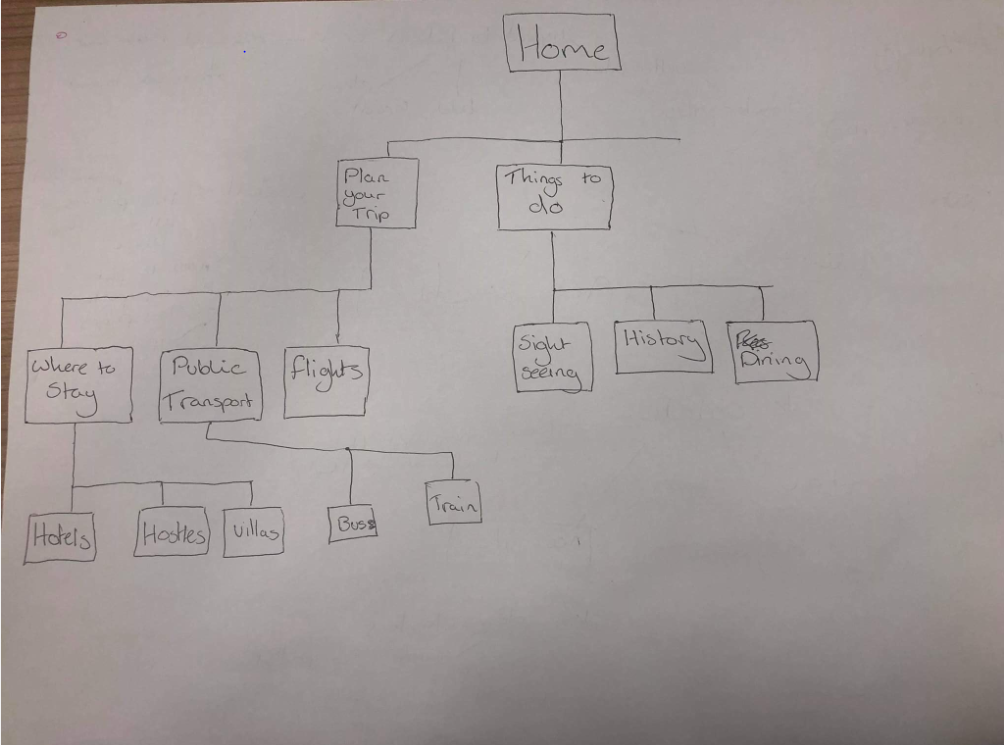 Home
Plan
your
Trip
Things to
do
Where to
Stay
Public
Transport
flights
Sight
seeing
History
Dining
Hotels
Hostles
Villas
Train